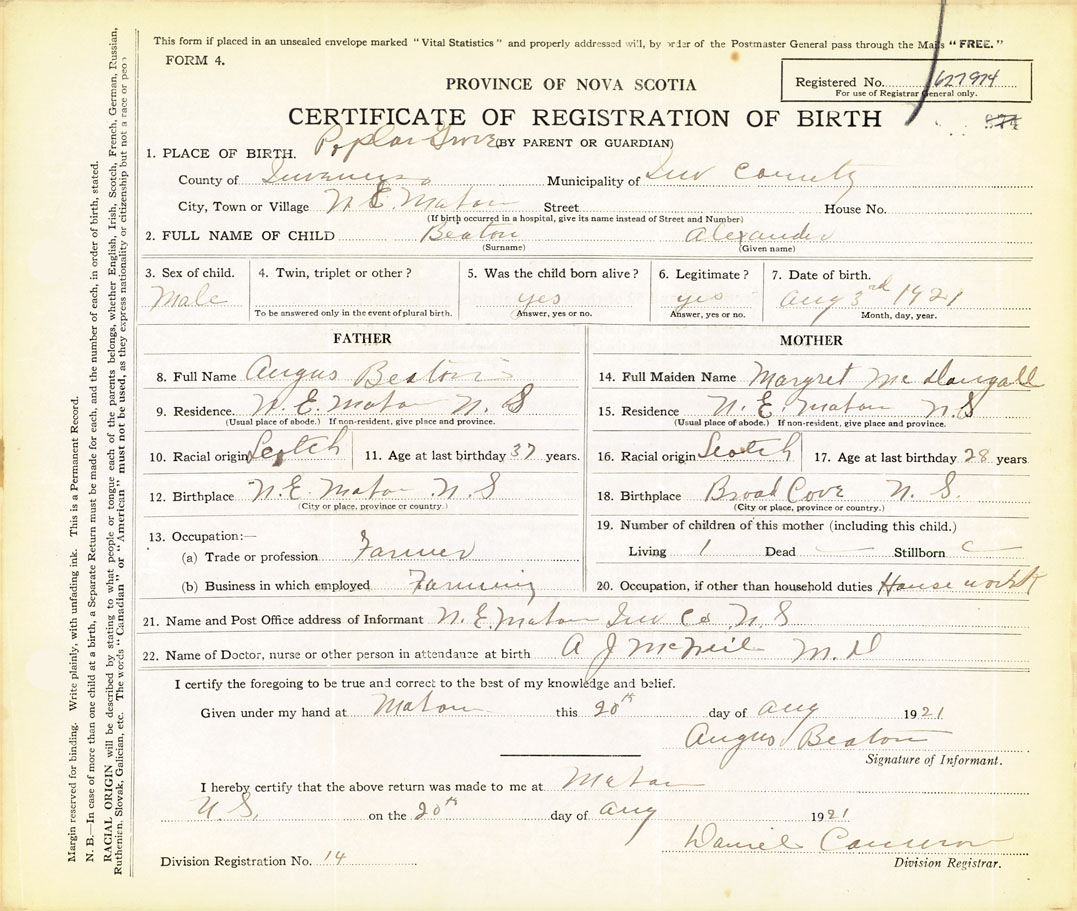 This form if placed in an unsealed envelope marked "Vital Statistics" and properly addressed will, by order of the Postmaster General pass through the Mails "FREE."
FORM 4.
Registered No. 627974
For use of Registrar General only.
PROVINCE OF NOVA SCOTIA
CERTIFICATE OF REGISTRATION OF BIRTH
874
Poplar Grove (BY PARENT OR GUARDIAN)
1. PLACE OF BIRTH.
County of Inverness Municipality of Inv County
City, Town or Village N. E. Mabou Street House No.
(If birth occurred in a hospital, give its name instead of Street and Number)
2. FULL NAME OF CHILD Beaton Alexander
(Surname) (Given name)
3. Sex of child. 4. Twin, triplet or other? 5. Was the child born alive? 6. Legitimate? 7. Date of birth.
Male yes yes Aug 3rd 1921
To be answered only in the event of plural birth. Answer, yes or no. Answer, yes or no. Month, day, year.
FATHER
8. Full Name Angus Beaton
9. Residence. N. E. Mabou N. S
(Usual place of abode.) If non-resident, give place and province.
10. Racial origin Scotch 11. Age at last birthday 37 years.
12. Birthplace N. E. Mabou N. S
(City or place, province or country.)
13. Occupation:—
(a) Trade or profession Farmer
(b) Business in which employed Farming
MOTHER
14. Full Maiden Name Margret McDougall
15. Residence N. E. Mabou N. S
(Usual place of abode.) If non-resident, give place and province.
16. Racial origin Scotch 17. Age at last birthday 28 years
18. Birthplace Broad Cove N. S.
(City or place, province or country.)
19. Number of children of this mother (including this child.)
Living 1 Dead — Stillborn
20. Occupation, if other than household duties House work
21. Name and Post Office address of Informant N. E. Mabou Inv Co N. S
22. Name of Doctor, nurse or other person in attendance at birth A J McNeil M. D
I certify the foregoing to be true and correct to the best of my knowledge and belief.
Given under my hand at Mabou this 20th day of Aug 1921
Angus Beaton
Signature of Informant.
I hereby certify that the above return was made to me at Mabou
N. S. on the 20th day of Aug 1921
Daniel Cameron
Division Registration No. 14 Division Registrar.
Margin reserved for binding. Write plainly, with unfading ink. This is a Permanent Record.
N. B.—In case of more than one child at a birth, a Separate Return must be made for each, and the number of each, in order of birth, stated.
RACIAL ORIGIN will be described by stating to what people or tongue each of the parents belongs, whether English, Irish, Scotch, French, German, Russian,
Ruthenien, Slovak, Galician, etc. The words "Canadian" or "American" must not be used, as they express nationality or citizenship but not a race or peo